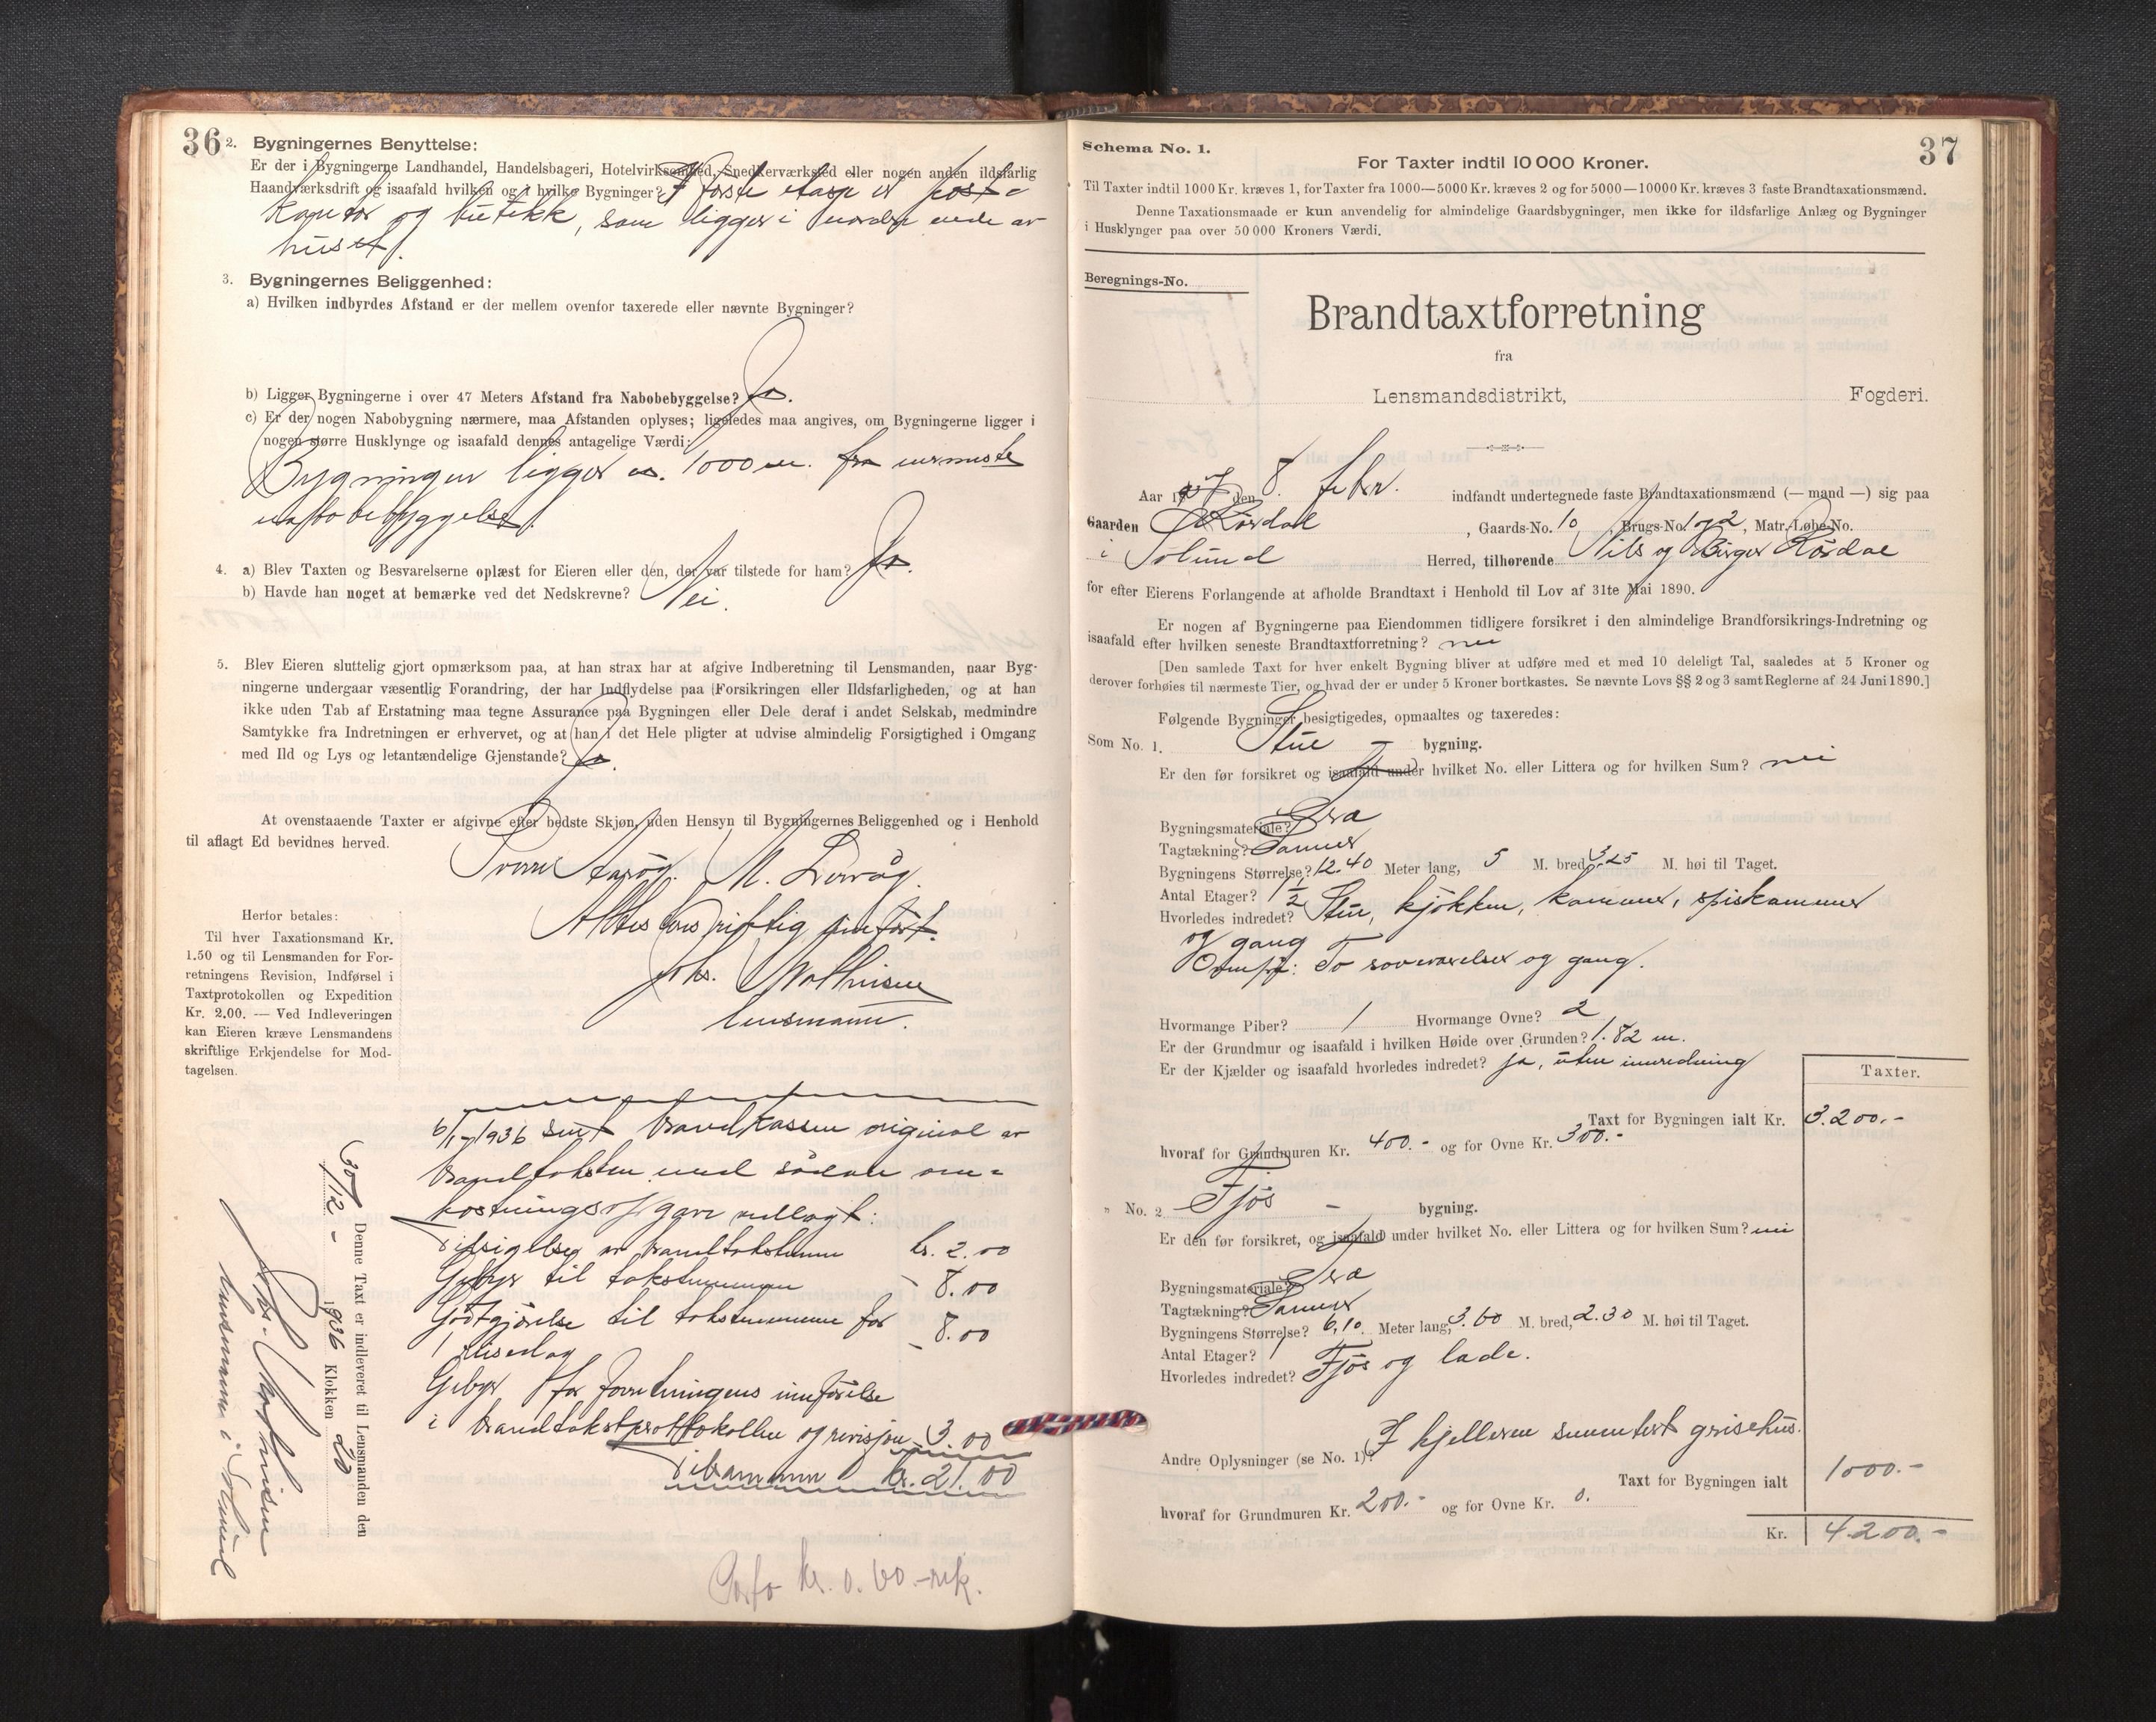 36
2. Bygningernes Benyttelse:
Er der i Bygningerne Landhandel, Handelsbageri, Hotelvirksomhed, Snedkerværksted eller nogen anden ildsfarlig
Haandværksdrift og isaafald hvilken og i hvilke Bygninger? I første etasje er post-
kontor og butikk, som ligger i nordre ende av
huset.
3. Bygningernes Beliggenhed:
a) Hvilken indbyrdes Afstand er der mellem ovenfor taxerede eller nævnte Bygninger?
b) Ligger Bygningerne i over 47 Meters Afstand fra Nabobebyggelse? Ja.
c) Er der nogen Nabobygning nærmere, maa Afstanden oplyses; ligeledes maa angives, om Bygningerne ligger i
nogen større Husklynge og isaafald dennes antagelige Værdi:
Bygningen ligger ca. 1000 m. fra nermeste
nabobebyggelse.
4. a) Blev Taxten og Besvarelserne oplæst for Eieren eller den, der var tilstede for ham? Ja.
b) Havde han noget at bemærke ved det Nedskrevne? Nei.
5. Blev Eieren sluttelig gjort opmærksom paa, at han strax har at afgive Indberetning til Lensmanden, naar Byg-
ningerne undergaar væsentlig Forandring, der har Indflydelse paa Forsikringen eller Ildsfarligheden, og at han
ikke uden Tab af Erstatning maa tegne Assurance paa Bygningen eller Dele deraf i andet Selskab, medmindre
Samtykke fra Indretningen er erhvervet, og at han i det Hele pligter at udvise almindelig Forsigtighed i Omgang
med Ild og Lys og letantændelige Gjenstande? Ja.
At ovenstaaende Taxter er afgivne efter bedste Skjøn, uden Hensyn til Bygningernes Beliggenhed og i Henhold
til aflagt Ed bevidnes herved.
M.
riktig innført.
Johs. Mathisen
lensmann.
Herfor betales:
Til hver Taxationsmand Kr.
1.50 og til Lensmanden for For-
retningens Revision, Indførsel i
Taxtprotokollen og Expedition
Kr. 2.00. — Ved Indleveringen
kan Eieren kræve Lensmandens
skriftlige Erkjendelse for Mod-
tagelsen.
1936 sent brandkassen original av
brandtaksten med sådan om-
kostningsoppgave vedlagt:
Tilsigelse av brandtakstmenn kr. 2.00
Gebyr til takstmennene - 8.00
Godtgjørelse til takstmennene for
reisedag - 8.00
Gebyr for forretningens innførelse
i brandtakstprotokollen og revisjon - 3.00
Tilsammen kr. 21.00
Porto kr. 0.60.- rek.
Denne Taxt er indleveret til Lensmanden den
30/12 - 1936 Klokken 20
Johs. Mathisen
lensmann i Solund
37
Schema No. 1.
For Taxter indtil 10 000 Kroner.
Til Taxter indtil 1000 Kr. kræves 1, for Taxter fra 1000—5000 Kr. kræves 2 og for 5000—10000 Kr. kræves 3 faste Brandtaxationsmænd.
Denne Taxationsmaade er kun anvendelig for almindelige Gaardsbygninger, men ikke for ildsfarlige Anlæg og Bygninger
i Husklynger paa over 50 000 Kroners Værdi.
Beregnings-No.
Brandtaxtforretning
fra
Lensmandsdistrikt, Fogderi.
Aar 1937 den 8. febr. indfandt undertegnede faste Brandtaxationsmænd (— mand —) sig paa
Gaarden , Gaards-No. 10 , Brugs-No. 1 og 2, Matr.-Løbe-No.
i Solund Herred, tilhørende Nils og Birger Rørdal
for efter Eierens Forlangende at afholde Brandtaxt i Henhold til Lov af 31te Mai 1890.
Er nogen af Bygningerne paa Eiendommen tidligere forsikret i den almindelige Brandforsikrings-Indretning og
isaafald efter hvilken seneste Brandtaxtforretning? nei
[Den samlede Taxt for hver enkelt Bygning bliver at udføre med et med 10 deleligt Tal, saaledes at 5 Kroner og
derover forhøies til nærmeste Tier, og hvad der er under 5 Kroner bortkastes. Se nævnte Lovs §§ 2 og 3 samt Reglerne af 24 Juni 1890.]
Følgende Bygninger besigtigedes, opmaaltes og taxeredes:
Som No. 1. Stue - bygning.
Er den før forsikret og isaafald under hvilket No. eller Littera og for hvilken Sum? nei
Bygningsmateriale? Tre
Tagtækning?
Bygningens Størrelse? 12.40 Meter lang, 5 M. bred, 3.25 M. høi til Taget.
Antal Etager? 1 1/2
Hvorledes indredet? Stue, kjøkken, kammer, spiskammer
og gang
To soveværelser og gang.
Hvormange Piber? 1 Hvormange Ovne? 2
Er der Grundmur og isaafald i hvilken Høide over Grunden? 1.82 m.
Er der Kjælder og isaafald hvorledes indredet? ja, uten innredning
Taxter.
Taxt for Bygningen ialt Kr. 3.200.-
hvoraf for Grundmuren Kr. 400.- og for Ovne Kr. 300.-
„ No. 2 Fjøs - bygning.
Er den før forsikret, og isaafald under hvilket No. eller Littera og for hvilken Sum? nei
Bygningsmateriale? Tre
Tagtækning?
Bygningens Størrelse? 6,10 Meter lang, 3.60 M. bred, 2.30 M. høi til Taget.
Antal Etager? 1
Hvorledes indredet? Fjøs og lade.
Andre Oplysninger (se No. 1)? I kjelleren sementert grisehus.
Taxt for Bygningen ialt 1000.-
hvoraf for Grundmuren Kr. 200.- og for Ovne Kr. 0.
Kr. 4.200.-